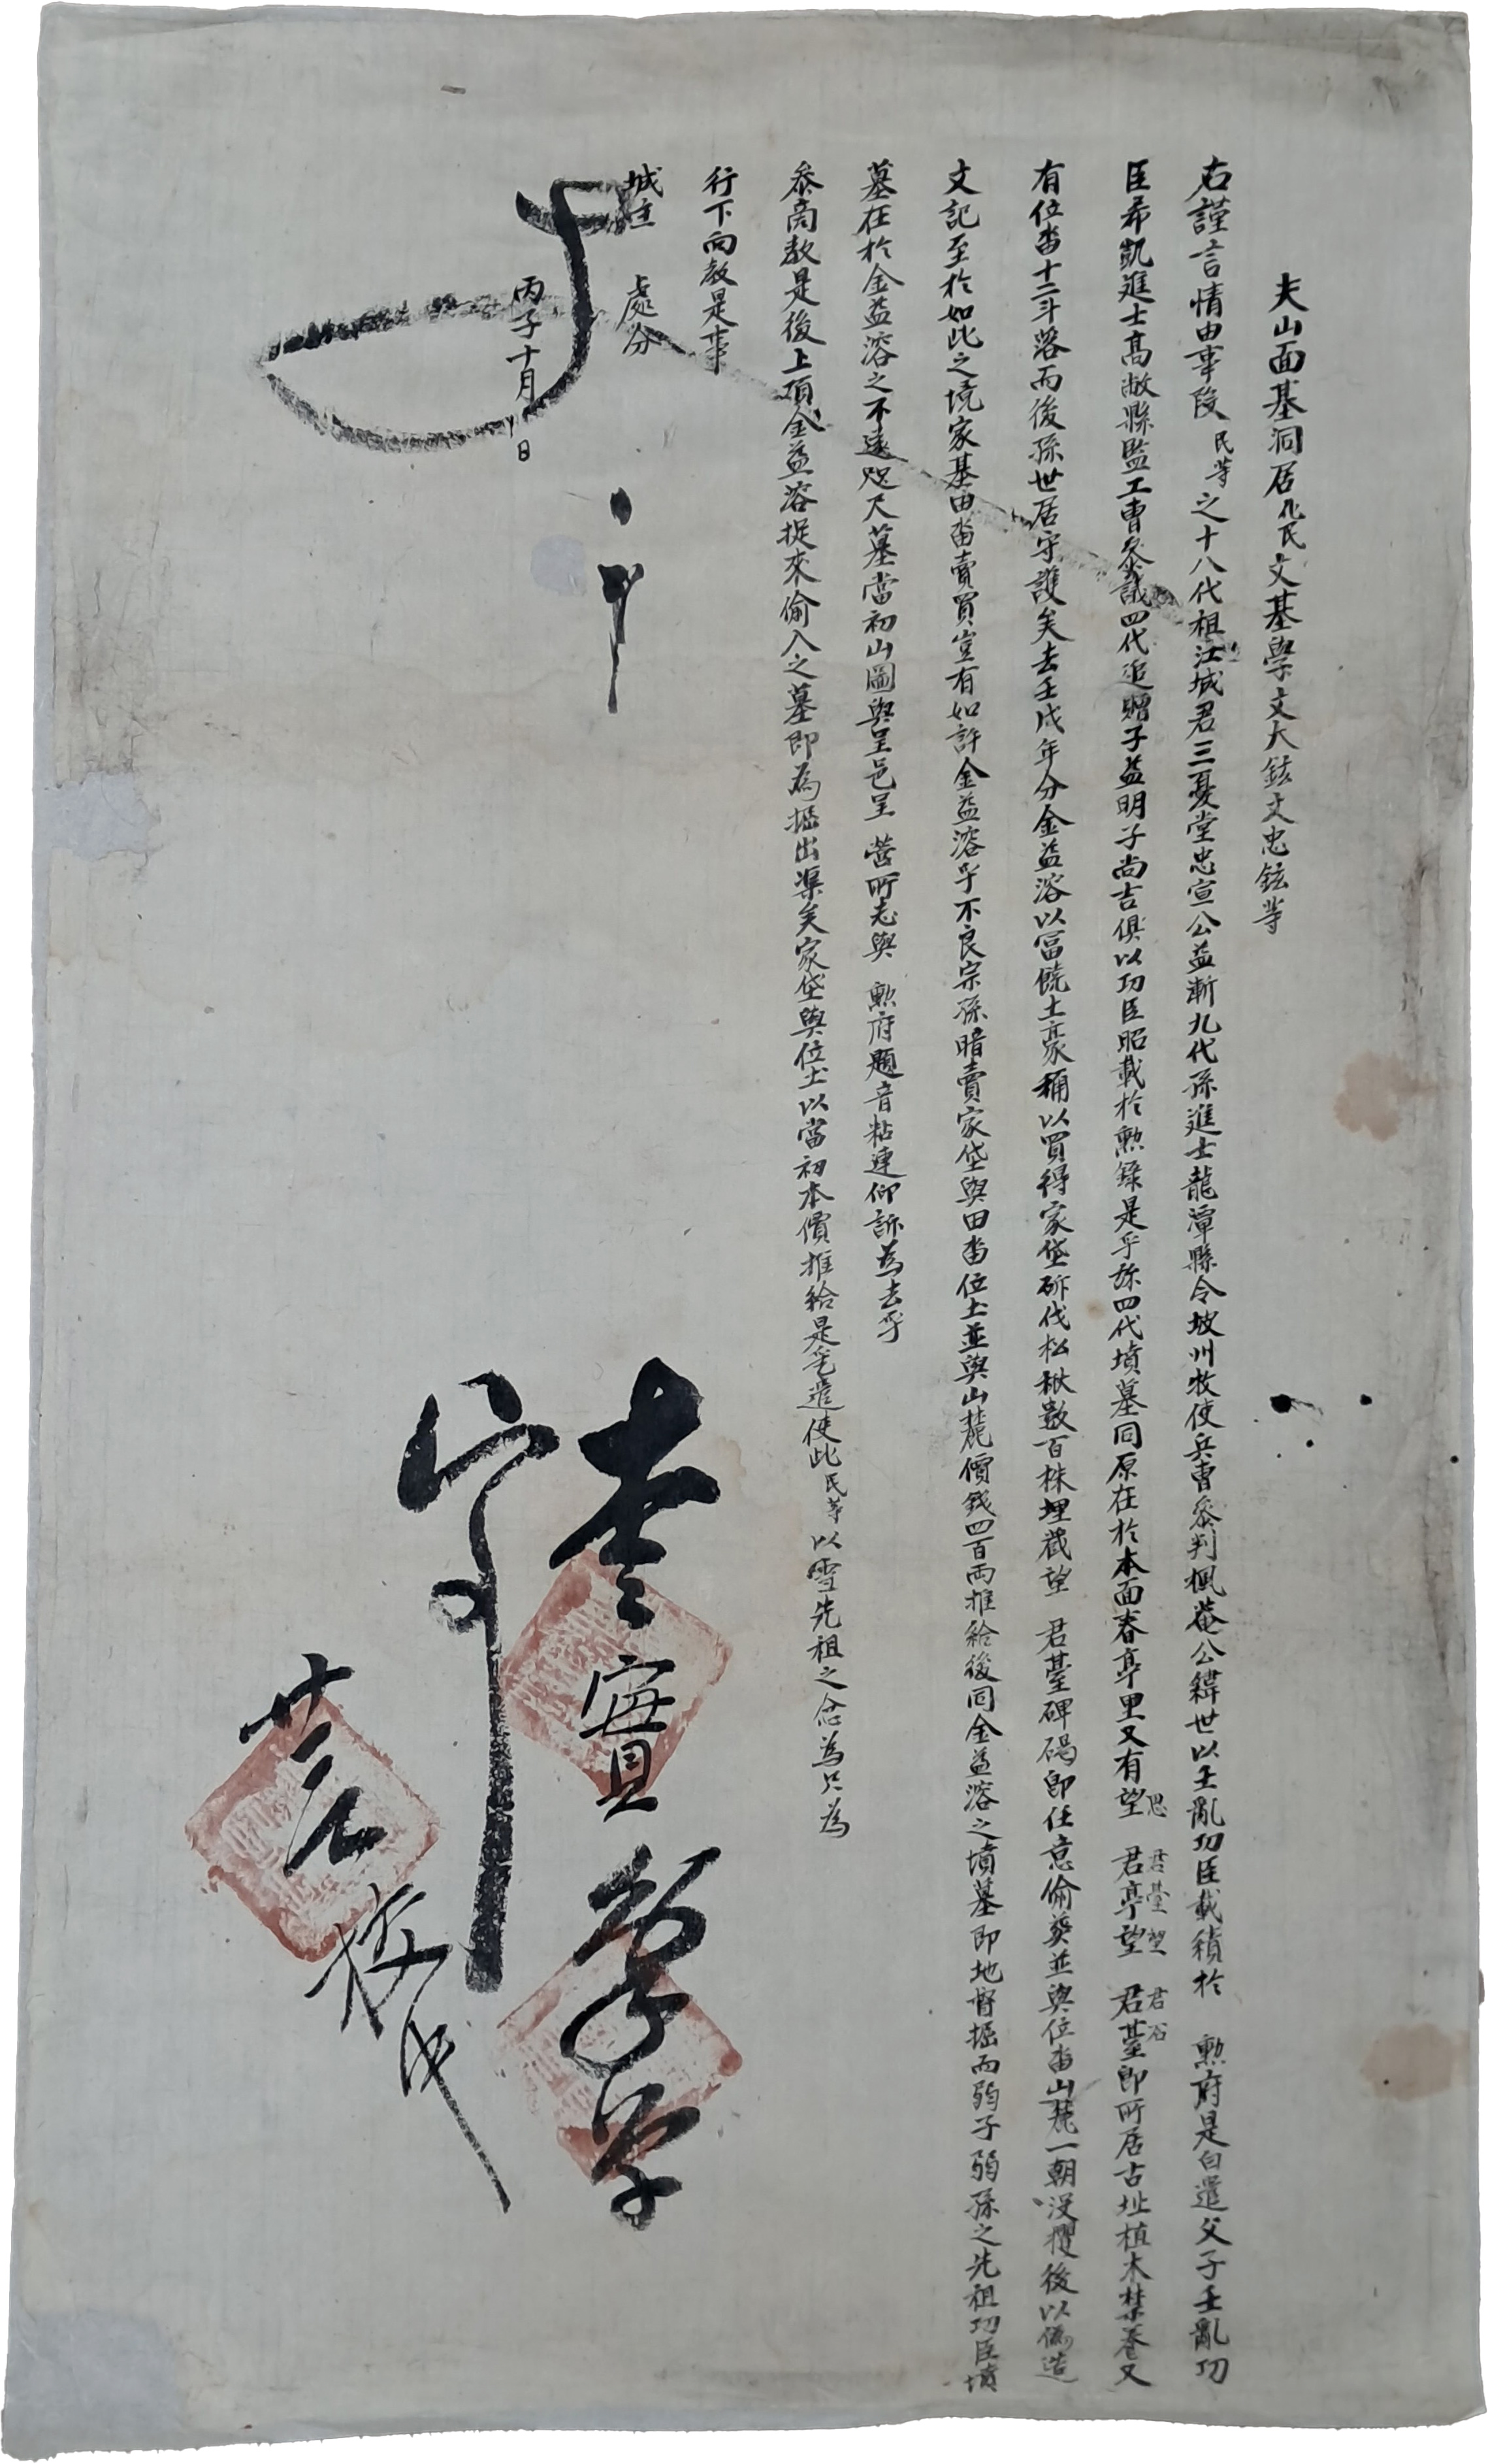 夫山面基洞居化民文基學文大鉉文忠鉉等
右謹言情由事段民等之十八代祖江城君三憂堂忠宣公益漸九代孫進士龍潭縣令坡州牧使兵曹參判楓菴公緯世以壬亂功臣載績於 勲府是白遣父子壬亂功
臣希凱進士高敞縣監工曹參議四代追贈子益明子尚吉俱以功臣昭載於勲錄是乎㫆四代墳墓同原在於本面春亭里又有望思 君亭望 君臺即所居古址植木禁養又
君臺望 君石
有位畓十二斗落而後孫世居守護矣去壬戌年分金益溶以富饒土豪稱以買得家垈斫伐松楸數百株埋藏望 君臺碑碣即任意偷葬並與位畓山麓一朝沒攫後以僞造
文記至於如此之境家基田畓賣買豈有如許金益溶乎不良宗孫暗賣家垈與田畓位土並與山麓價錢四百兩推給後同金益溶之墳墓即地督掘而弱子弱孫之先祖功臣墳
墓在於金益溶之不遠咫尺墓當初山圖與呈邑呈 營所志與 勲府題音粘連仰訴為去乎
參商教是後上項金益溶捉來偷入之墓即為掘出渠矣家垈與位土以當初本價推給是乎遣使此民等以雪先祖之忿為只為
行下向教是事
城主 處分
丙子十月 日
查實
學